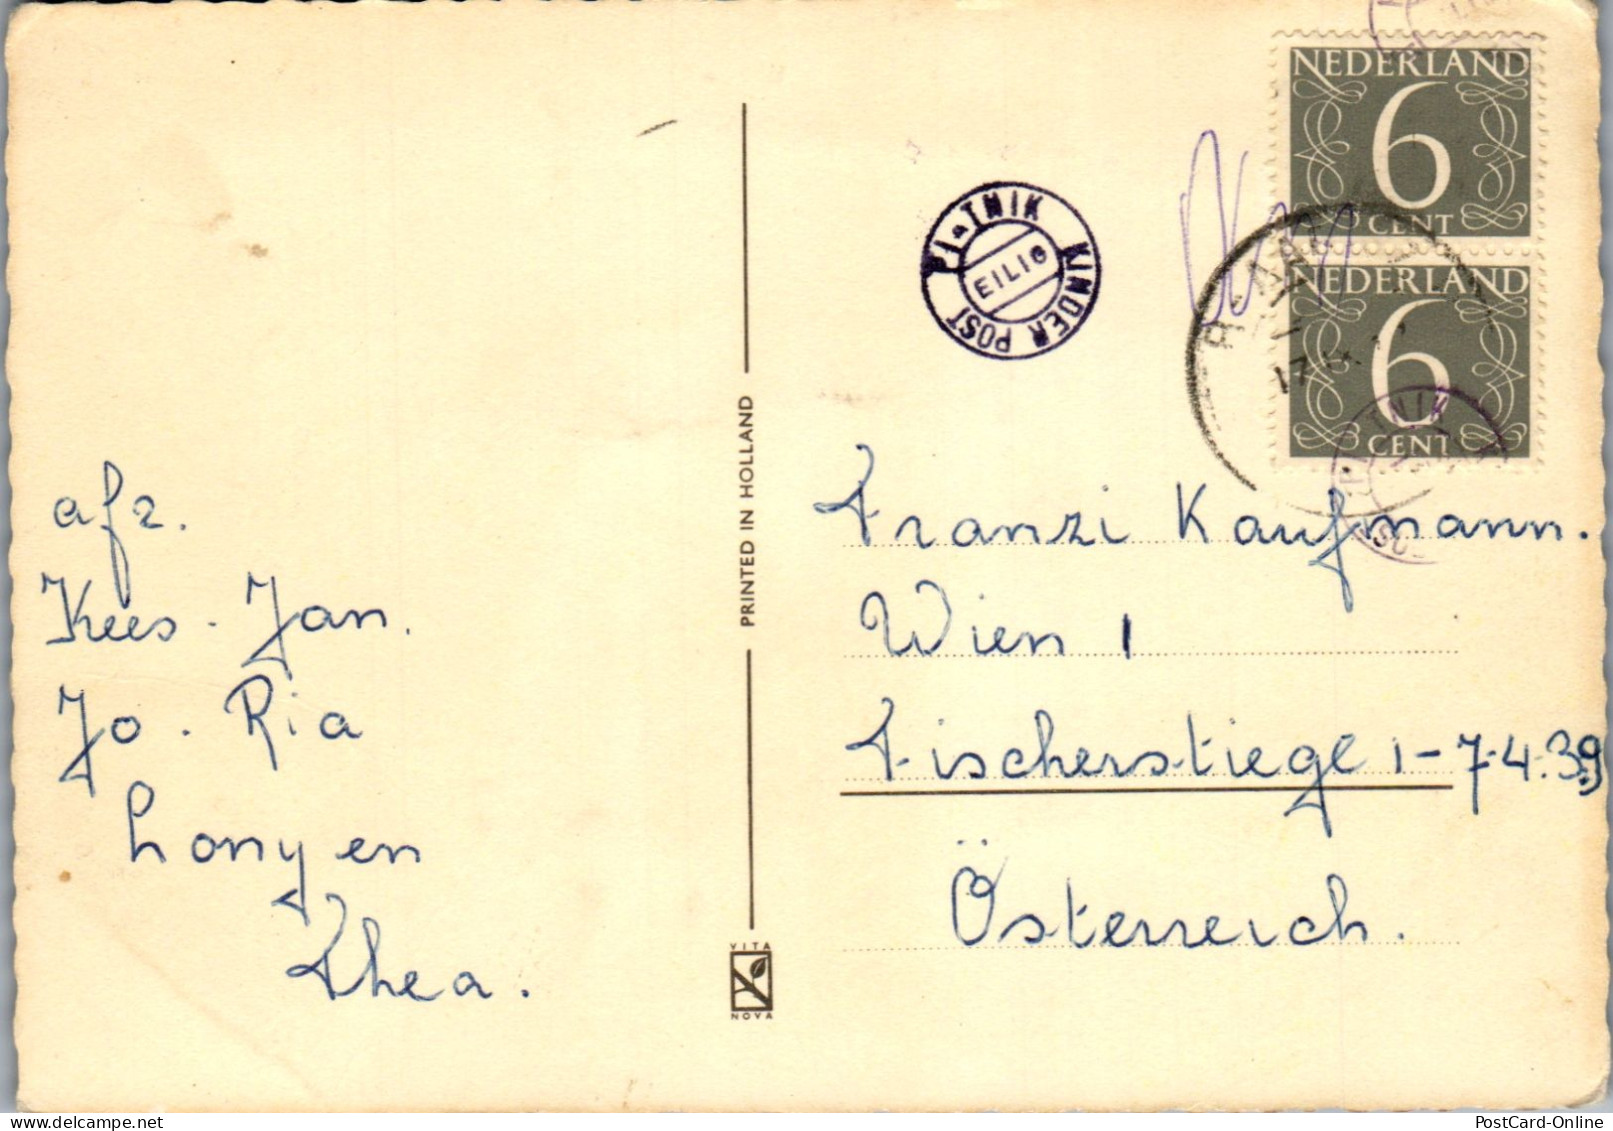 NEDERLAND
6
CENT
NEDERLAND
6
CENT
PIATNIK KINDER POST
EILIG
afz.
Kees - Jan.
Jo. Ria
Longen
Thea.
PRINTED IN HOLLAND
VITA
NOVA
Franzi Kaufmann.
Wien 1
Fischerstiege 1-7-4.39
Österreich.
PostCard-Online